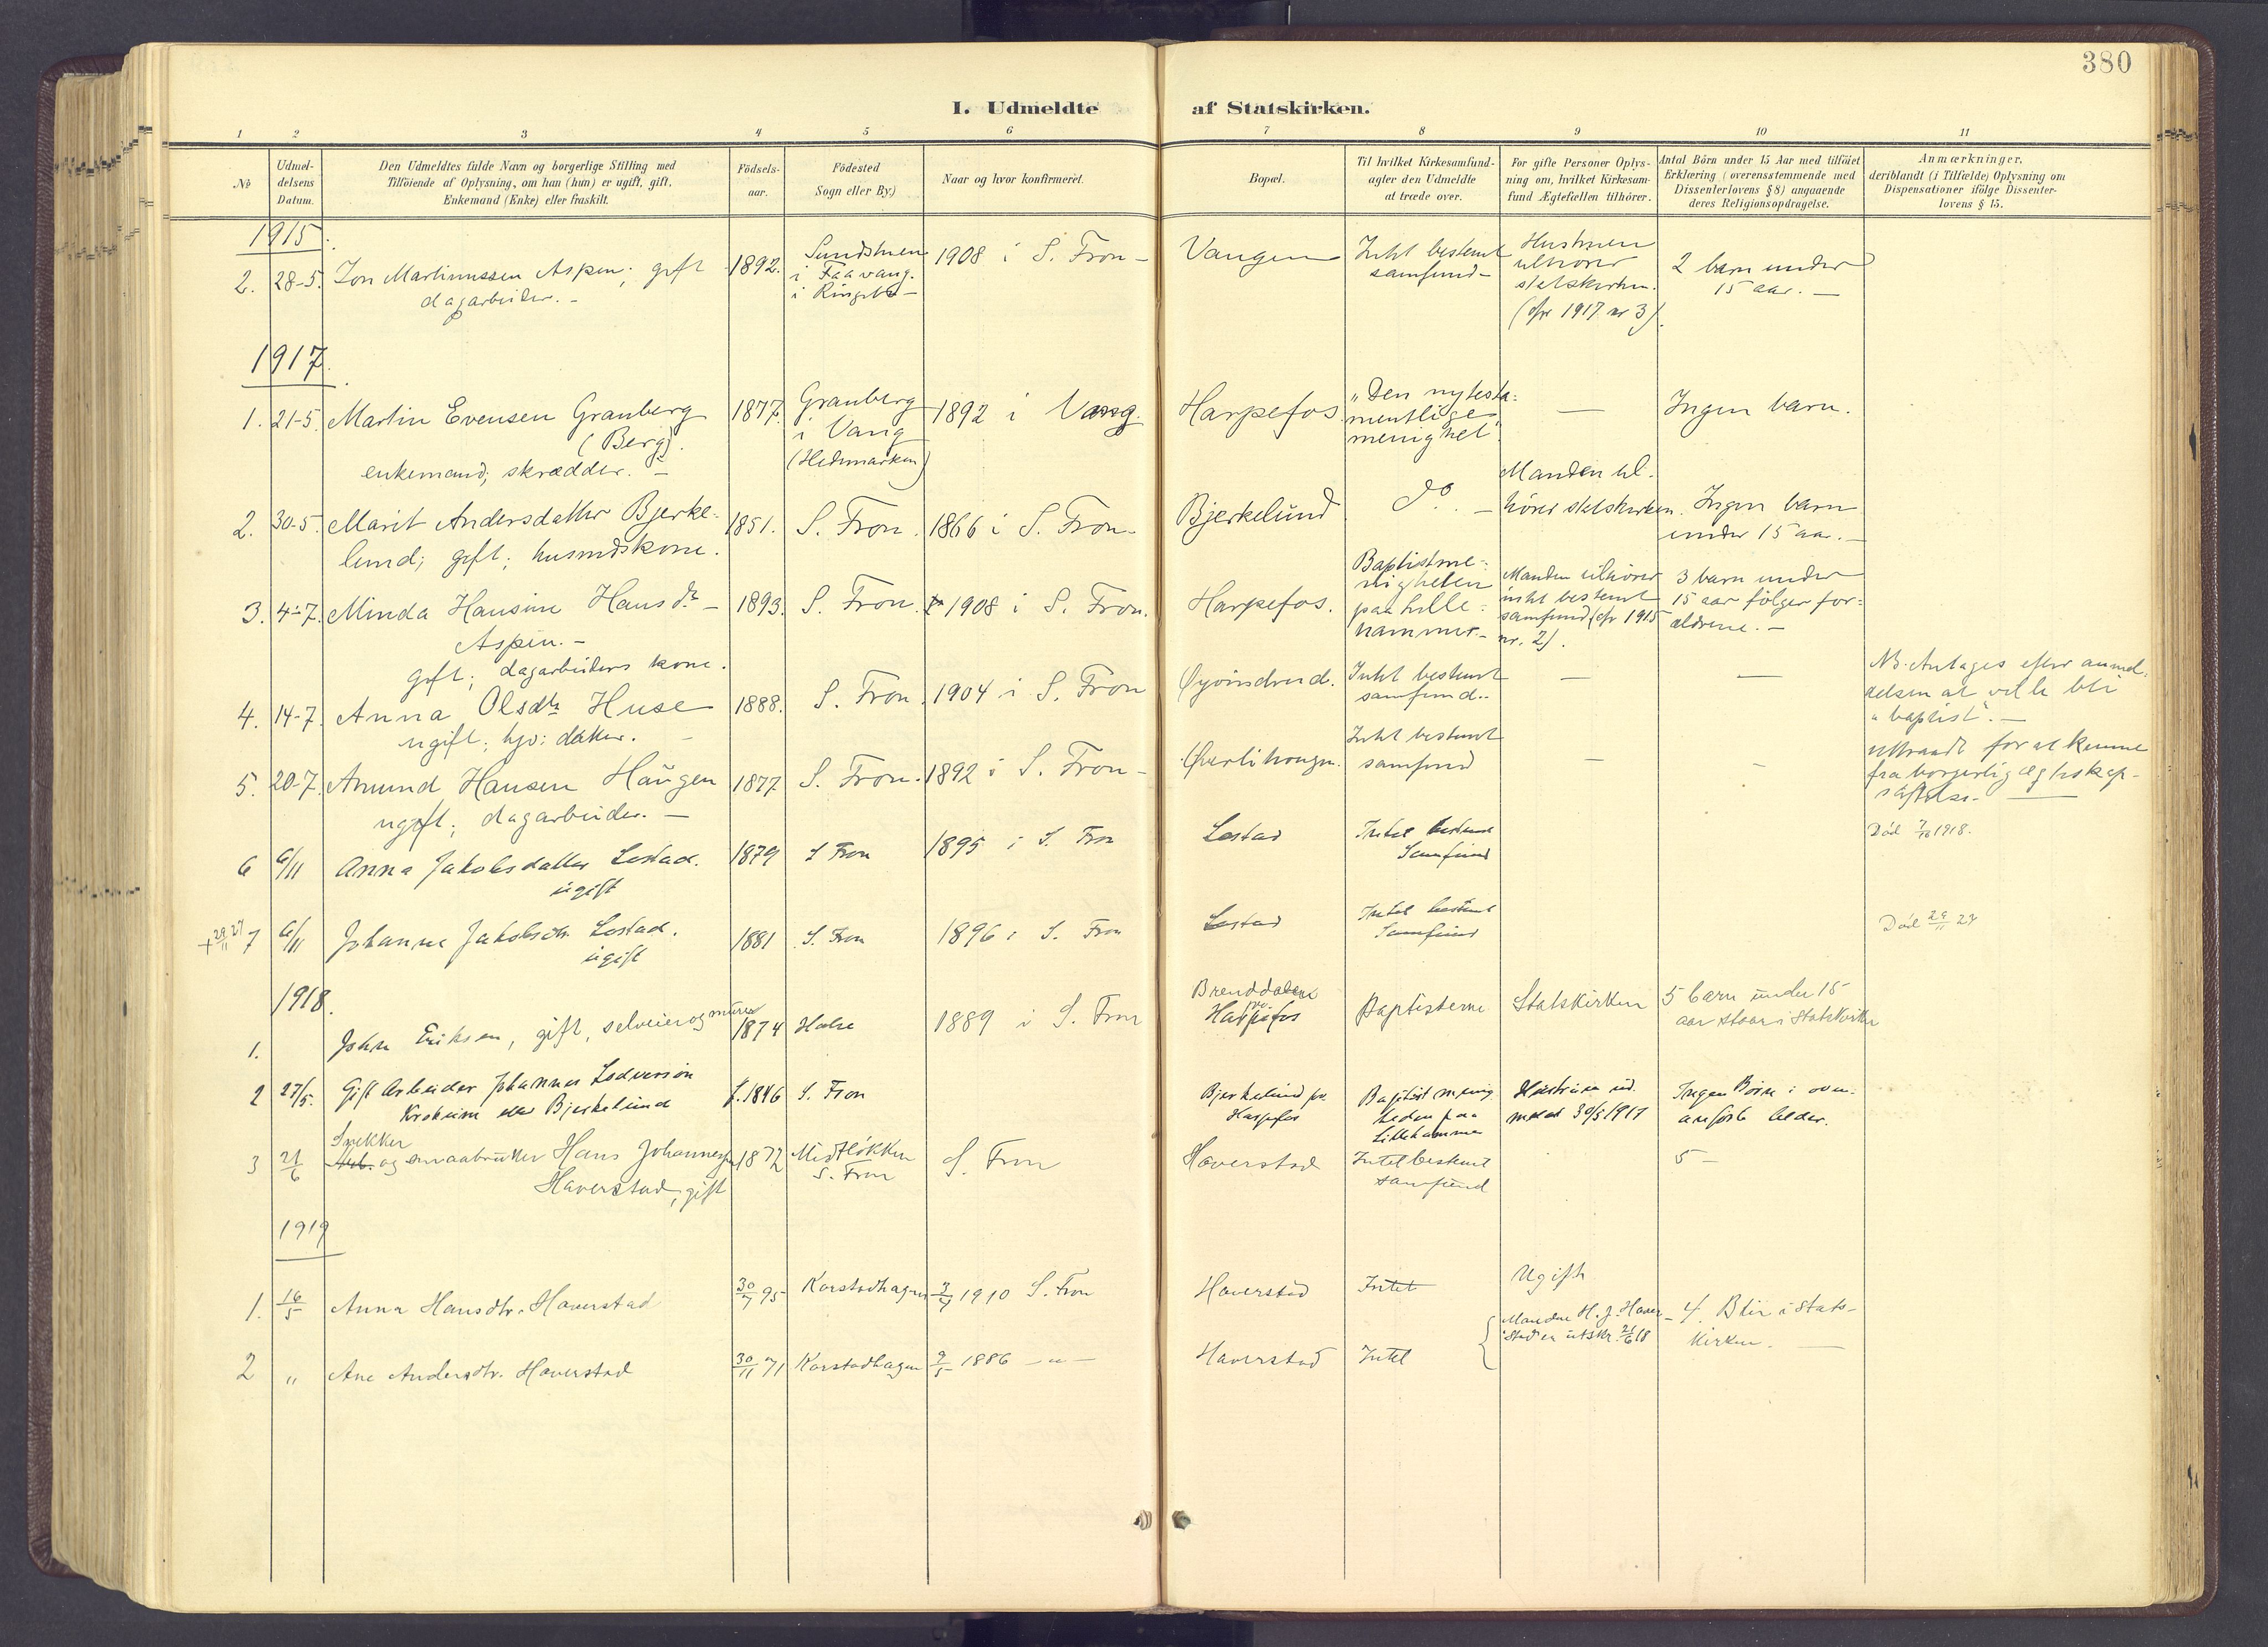 380
I. Udmeldte af Statskirken.
1 2 3 4 5 6 7 8 9 10 11
No
Udmel-
delsens
Datum.
Den Udmeldtes fulde Navn og borgerlige Stilling med
Tilföiende af Oplysning, om han (hun) er ugift, gift,
Enkemand (Enke) eller fraskilt.
Födsels-
aar.
Födested
Sogn eller By.)
Naar og hvor konfirmeret.
Bopæl.
Til hvilket Kirkesamfund-
agter den Udmeldte
at træde over.
For gifte Personer Oplys-
ning om, hvilket Kirkesam-
fund Ægtefællen tilhörer.
Antal Börn under 15 Aar med tilföiet
Erklæring (overensstemmende med
Dissenterlovens § 8) angaaende
deres Religionsopdragelse.
Anmærkninger,
deriblandt (i Tilfælde) Oplysning om
Dispensationer ifölge Dissenter-
lovens § 15.
1915
2. 28-5. Jon Martinussen Aspen; gift
dagarbeider. -
1892.
i Faavang.
i Ringebu -
1908 i S. Fron -
Vangen
Intet bestemt
samfund -
Hustruen
tilhører
statskirken.
(cfr 1917 nr 3).
2 barn under
15 aar. -
1917.
1. 21-5. Martin Evensen Granberg
(Berg).
enkemand; skrædder. -
1877.
Granberg
i Vang
(Hedemarken)
1892 i Vang.
Harpefos.
"Den nytesta-
mentlige
menighet"
-
Ingen barn.
2. 30-5. Marit Andersdatter Bjerke-
lund; gift; husmdskone.
1851.
S. Fron.
1866 i S. Fron.
Bjerkelund
do. -
Manden til-
hører statskirken.
Ingen barn
under 15 aar. -
3. 4-7. Minda Hansine Hansdtr -
Aspen. -
gift; dagarbeiders kone.
1893.
S. Fron.
1908 i S. Fron.
Harpefos.
Baptistme-
nigheten
paa Lille-
hammer. -
Manden tilhører
intet bestemt
samfund (cfr 1915
nr. 2).
3 barn under
15 aar følger for-
ældrene. -
4. 14-7. Anna Olsdtr Huse
ugift; hjv: datter. -
1888.
S. Fron.
1904 i S. Fron
Intet bestemt
samfund..
-
-
NB. Antages efter anmel-
delsen at ville bli
"baptist". -
5. 20-7. Amund Hansen Haugen
ugift; dagarbeider. -
1877
S. Fron.
1892 i S. Fron -
Intet bestemt
samfund
-
-
Uttraadt for at kunne
fra borgerlig
6 6/11 Anna Jakobsdatter Lostad.
ugift
1879
S Fron
1895 i S. Fron
Lostad
Intet bestemt
Samfund
Död 7/10 1918.
+ 29/11 27 7 6/11 Johanna Jakobsdtr. Lostad.
ugift
1881
S. Fron
1896 i S. Fron
Lostad
Intet bestemt
Samfund
Död 29/11 27
1918.
1. John Eriksen, gift, selveier og murer
1874
1889 i S. Fron
Brenddalen
pr.
Harpefos
Baptisterne
Statskirken
5 barn under 15
aar staar i Statskirken
2 27/5. Gift Arbeider Johannes
eller Bjerkelund
f. 1846
S. Fron
Bjerkelund pr.
Harpefos
Baptist menig
heden paa
Lillehammer
Hustruen ud-
meldt 30/5 1917
Ingen Börn i oven-
anförte alder.
3 21/6 Snekker
og smaabruker Hans Johannesen
Haverstad, gift
1872
Midtløkken
S. Fron
S. Fron
Haverstad
Intet bestemt
samfund
5 -
1919
1. 16/5 Anna Hansdtr. Haverstad
30/7 95
Korstadhagen
3/7 1910 S. Fron
Haverstad
Intet
Ugift
2 " Ane Andersdtr. Haverstad
30/11 71
Korstadhagen
9/5 1886 - " -
Haverstad
Intet
Manden H. J. Haver-
stad er utskr. 21/6 18
- 4. Blir i Stats-
kirken. -